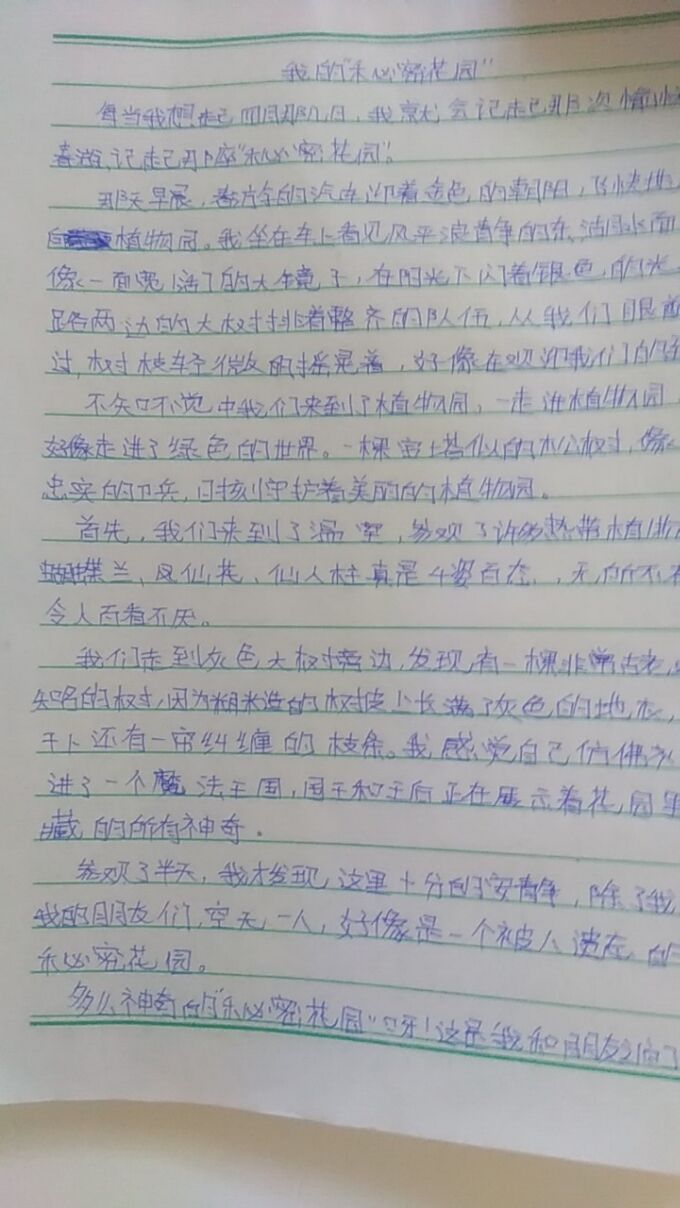 我的"秘密花园"
每当我想起四月那几日，我就会记起那次愉
春游，记起那座"秘密花园"。
那天早晨，奔放的汽车迎着金色的朝阳，飞快地
植物园。我坐在车上看见风平浪静的东湖水面
像一面宽阔的大镜子，在阳光下闪着银色的光
路两边的大树排着整齐的队伍，从我们眼前
过，树枝轻微的摇晃着，好像在欢迎我们的到
不知不觉中我们来到了植物园，一走进植物园
好像走进了绿色的世界。一棵宝塔似的松树，像
忠实的卫兵，日刻守护着美丽的植物园。
首先，我们来到了温室，参观了许多热带植物
蝴蝶兰、凤仙花、仙人柱真是千姿百态，无所不有
令人百看不厌。
我们走到灰色大树旁边，发现有一棵非常古老，
知名的树，因为粗糙的树皮上长满了灰色的地衣，
干上还有一帘纠缠的枝条。我感觉自己仿佛
进了一个魔法王国，国王和王后正在展示着花园里
藏的所有神奇。
参观了半天，我才发现，这里十分的安静，除了我
我的朋友们，空无一人，好像是一个被人遗忘的
秘密花园。
多么神奇的"秘密花园"呀！这是我和朋友们